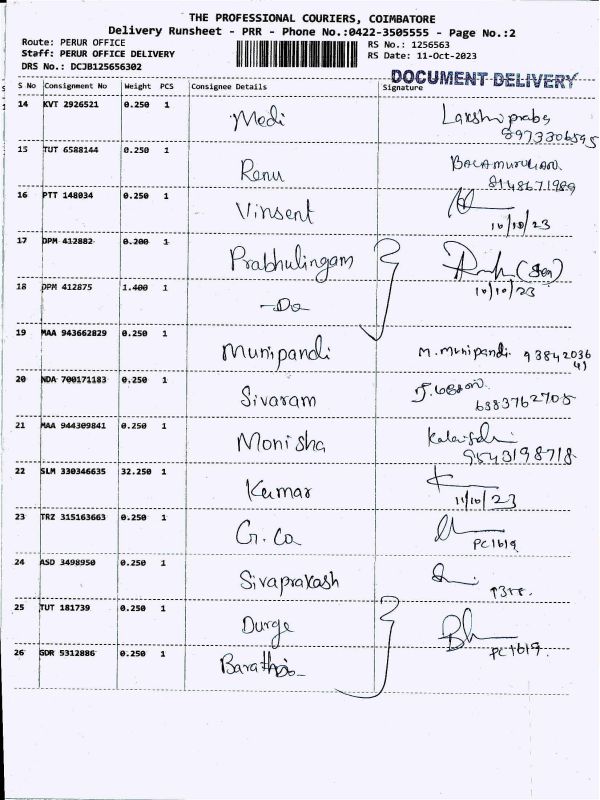 THE PROFESSIONAL COURIERS, COIMBATORE
Delivery Runsheet - PRR - Phone No.:0422-3505555 - Page No.:2
Route: PERUR OFFICE RS No.: 1256563
Staff: PERUR OFFICE DELIVERY RS Date: 11-Oct-2023
DRS No.: DCJB125656302
DOCUMENT DELIVERY
S No Consignment No Weight PCS Consignee Details Signature
14 KVT 2926521 0.250 1 Medi Lakshi praba
8973306595
15 TUT 6588144 0.250 1 Renu BALAMURUGAN
8148671989
16 PTT 148034 0.250 1 Vinsent
10/10/23
17 DPM 412882 0.200 1 Prabhulingam (Son)
10/10/23
18 DPM 412875 1.400 1 -Do-
19 MAA 943662829 0.250 1 Munipandi M. Munipandi 93842036
41
20 NDA 700171183 0.250 1 Sivaram
6383762705
21 MAA 944309841 0.250 1 Monisha
9543198718
22 SLM 330346635 32.250 1 Kumar
11/10/23
23 TRZ 315163663 0.250 1 G. Co
PC1619
24 ASD 3498950 0.250 1 Sivaprakash
25 TUT 181739 0.250 1 Durge
PC1619
26 GDR 5312886 0.250 1